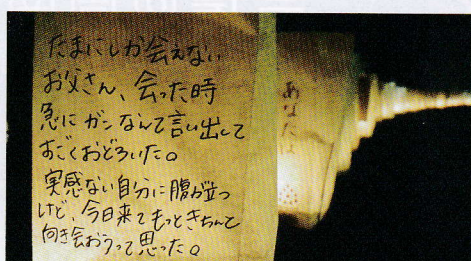 たまにしか会えない
お父さん、会った時
急にガンなんて言い出して
すごくおどろいた。
実感ない自分に腹が立つ
けど、今日来てもっときちんと
向き会おうって思った。
あなたは